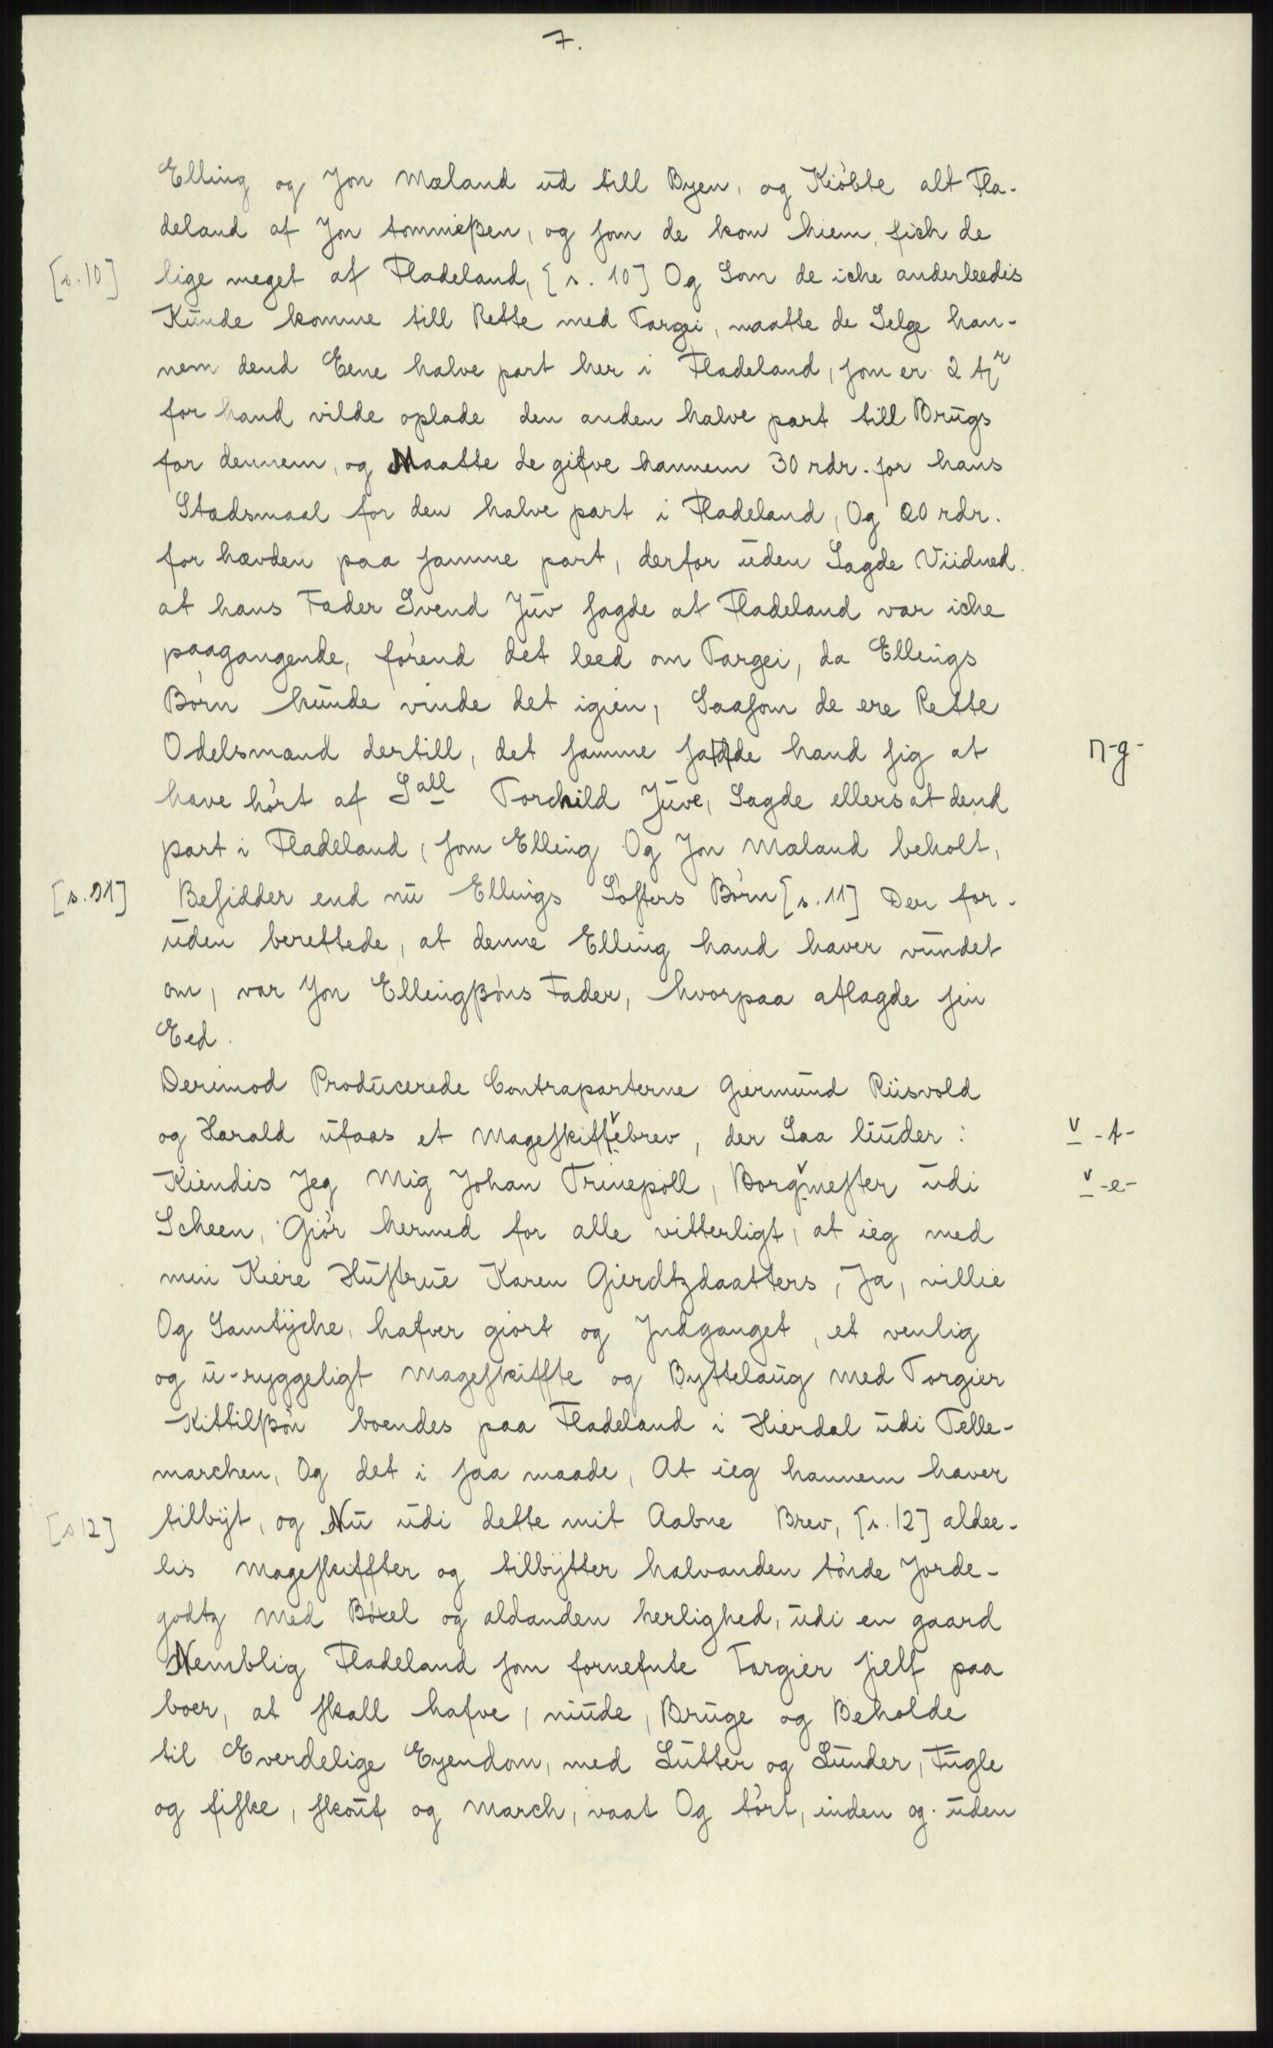 7.
Elling og Jon Mæland ud till Byen, og Kiöbte alt Fla-
deland af Jon tommießen, og som de kom hiem, fich de
[s.10] lige meget af Fladeland, [s. 10] Og Som de iche anderleedis
Kunde komme till Rette med Targei, maatte de Selge han-
nem dend Eene halve part her i Fladeland, som er 2 tr
for hand vilde oplade den anden halve part till Brugs
for dennem, og Maatte de gifve hannem 30 rdr. for hans
Stædsmaal for den halve part i Fladeland, Og 20 rdr.
for hævden paa samme part, derfor uden Sagde Viidned.
at hans Fader Svend Juv sagde at Fladeland var iche
paagangende, førend det leed om Targei, da Ellings
Børn kunde vinde det igien, Saasom de ere Rette
Odelsmænd dertill, det samme sagde hand sig at ⊓-g-
have hørt af Sall Torchild Juve, Sagde ellers at dend
part i Fladeland, som Elling Og Jon Mæland beholt,
[s.11] Besidder end nu Ellings Søsters Børn [s. 11] Der for-
uden berettede, at denne Elling hand haver vundet
om, var Jon Ellingßøns Fader, hvorpaa aflagde sin
Eed.
Derimod Producerede Contraparterne Giermund Riisvold
og Harald ufaas et Mageskiftebrev, der Saa liuder: v -t-
Kiendis Jeg Mig Johan Trinepoll, Borgmester udi v -e-
Scheen, Giør hermed for alle vitterligt, at ieg med
min Kiere Hustrue Karen Gierdtzdaatters, Ja, villie
Og Samtÿche, hafver giort og Indganget, et venlig
og u-ryggeligt Mageskiffte og Byttelaug med Torgier
Kittilßøn boendes paa Fladeland i Hierdal udi Telle-
marchen, Og det i saa maade, At ieg hannem haver
[s 12] tilbÿt, og Nu udi dette mit Aabne Brev, [s. 12] aldee-
lis Mageskiffter og tilbÿtter halvanden tønde Jorde-
godtz Med Bøxel og aldanden herlighed, udi en gaard
Nemblig Fladeland som fornefnte Targier sielf paa
boer, at skall hafve, niude, Bruge og Beholde
til Everdelige Eyendom, med Lutter og Lunder, Fugle
og fiske, skouf og March, vaat Og tørt, inden og uden